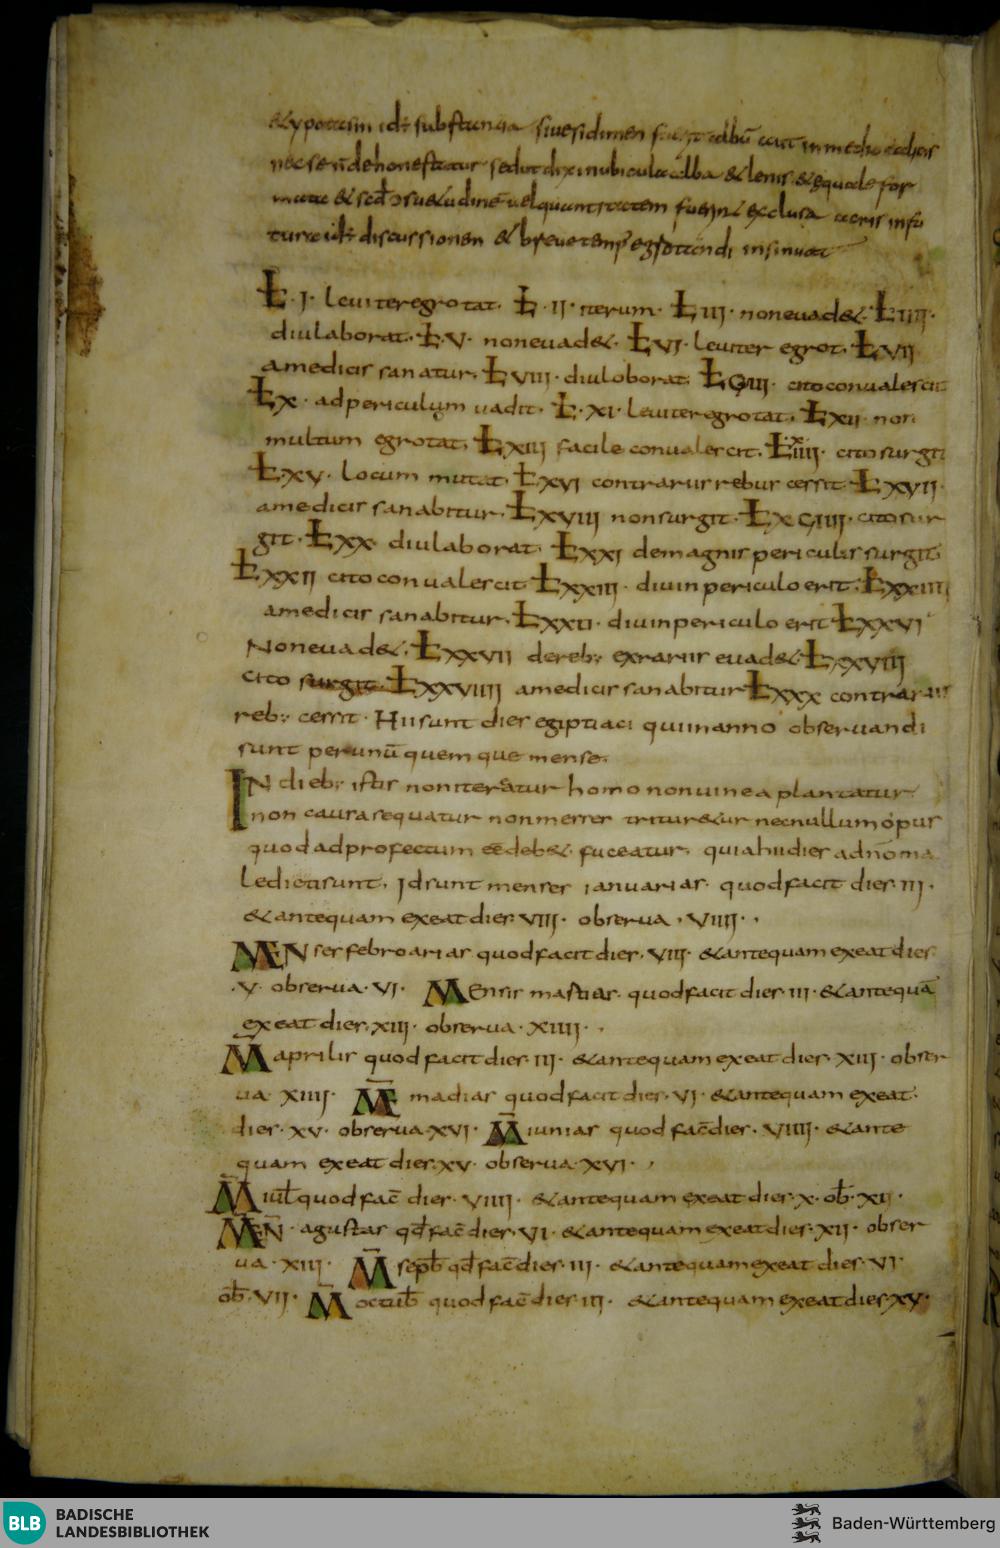 &ypotasin idẽ substantia siuesidimen fuerit albũ aut in medio
necse iĩ dehonestatur sedut dixi nubicula alba & lenis & equale for
mata & scd̃ &
tura idẽ discussionen & breue temp̃ egrotandi insinuat
Ł · I · leuiteregrotat · Ł · II · iterum · Ł III · noneuad& · Ł IIII ·
diulaborat · Ł · V · noneuad& · Ł VI · leuiter egrot · Ł VII
amedicis sanatur · Ł VIII · diuloborat · Ł VIIII · citoconualescit
Ł X · adpericulum uadit · Ł · XI · leuiteregrotat · Ł XII non
multum egrotat · Ł XIII facile conualescit · Ł XIIII · cito surgit
Ł · XV · locum mutat · Ł XVI contrariis rebus cessit · Ł XVII ·
amedicis sanabitur · Ł XVIII nonsurgit · Ł XVIIII · cito sur
git · Ł XX · diulaborat · Ł XXI demagnis periculis surgit
Ł XXII cito conualescit Ł XXIII · diuinpericulo erit · Ł XXIIII
amedicis sanabitur · Ł XXV · diuinpericulo erit Ł XXVI
Noneuad& · Ł XXVII dereb; exrariis euad& Ł XXVIII
cito surgit · Ł XXVIIII amedicis sanabitur Ł XXX contrariis
reb; cessit · Hiisunt dies egiptiaci quiinanno obseruandi
sunt perunũ quem que mense ·
IN dieb; istis noniteratur homo nonuinea plantatur
non causasequatur nonmesses tritur&ur necnullum opus
quod adprofectum eẽ deb& · fuceatur · quiahiidies adnõ ma
ledictisunt · Idsunt menses ianuarias · quodfacit dies III ·
&antequam exeat dies VIII · obserua · VIIII ·
MEN ses febroarias quodfacit dies · VIII · &antequam exeat dies
· V · obserua · VI · MEnsis mastias · quodfacit dies III · &antequã
exeat dies XIII · obserua · XIIII ·
M̃ aprilis quodfacit dies III · &antequam exeat dies · XIII · obser
ua XIIII · M̃E madias quodfacit dies · VI · &antequam exeat ·
dies · XV · obserua XVI · M̃ iunias quod fac̃ dies · VIIII · &ante
quam exeat dies XV · obserua XVI ·
M̃ iul̃ quod fac̃ dies · VIIII · &antequam exeat dies X · ob̃ · XII ·
MEÑ · agustas qd̃ fac̃ dies VI · &antequam exeat dies XII · obser
ua · XIII · M̃ sepb̃ qd̃ fac̃ dies III · &antequam exeat dies VI ·
ob̃ · VII · M̃ octub̃ quod fac̃ dies III · &antequam exeat dies XV ·
BLB BADISCHE
LANDESBIBLIOTHEK
Baden-Württemberg